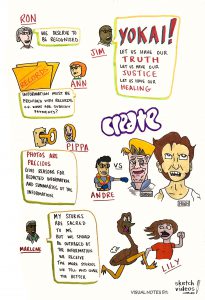 RON
WE DESERVE TO
BE RECOGNISED
JIM
YOKAI!
LET US HAVE OUR
TRUTH
LET US HAVE OUR
JUSTICE
LET US HAVE OUR
HEALING
RECORDS
ANN
INFORMATION MUST BE
PROVIDED WITH RECORDS
GO
PIPPA
CREATE
PHOTOS ARE
PRECIOUS
GIVE REASONS FOR
REDACTED INFORMATION
AND SUMMARIES OF THE
INFORMATION
ANDRE
VS
MY STORIES
ARE SACRED
TO ME
BUT WE SHOULD
BE OUTRAGED AT
THE INFORMATION
WE RECEIVE
THE MORE STORIES
WE TELL AND OWN
THE BETTER
MARLENE
LILY
VISUAL NOTES BY:
sketch
videos